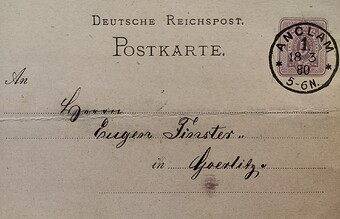 DEUTSCHE REICHSPOST.
POSTKARTE.
ANCLAM
1.
18 3
80
5-6N.
An
Herrn
Eugen Finster
in Goerlitz